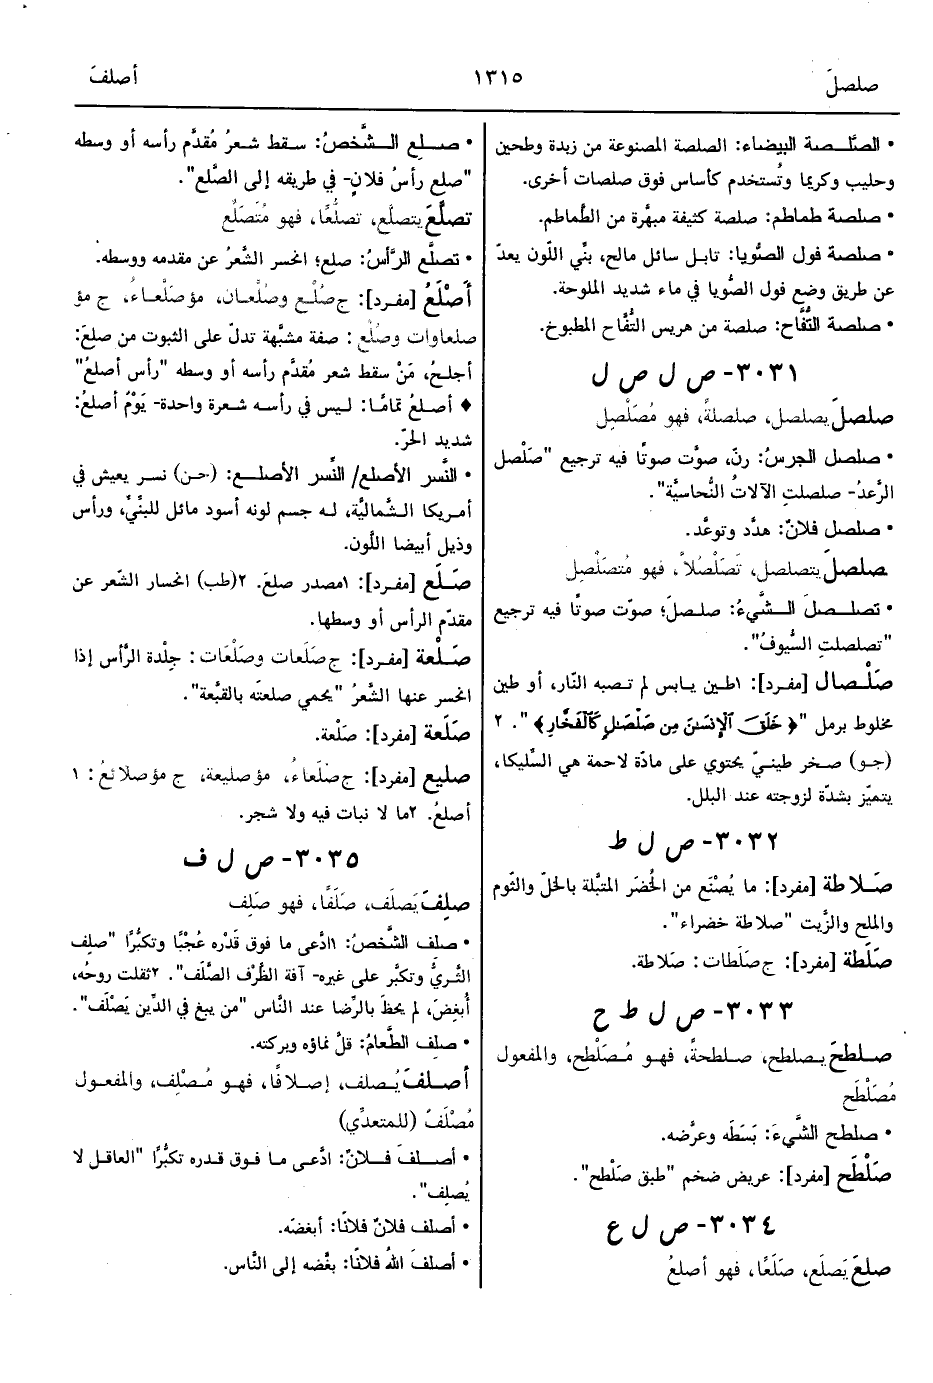 صلصلَ
١٣١٥
أصلفَ
• الصَّلصة البيضاء: الصلصة المصنوعة من زبدة وطحين
وحليب وكريما وتُستخدم كأساس فوق صلصات أخرى.
• صلصة طماطم: صلصة كثيفة مبهَّرة من الطَّماطم.
• صلصة فول الصّويا: تابل سائل مالح، بنِّي اللّون يعدّ
عن طريق وضع فول الصُّويا في ماء شديد الملوحة.
• صلصة التُّفَّاح: صلصة من هريس التُّفَّاح المطبوخ.
٣٠٣١- ص ل ص ل
صلصلَ يصلصل، صلصلةً، فهو مُصَلْصِل
• صلصل الجرسُ: رنّ، صوَّت صوتًا فيه ترجيع "صَلْصل
الرَّعدُ- صلصلتِ الآلاتُ النُّحاسيَّة".
• صلصل فلانٌ: هدَّد وتوعَّد.
صلصلَ يتصلصل، تَصَلْصُلاً، فهو مُتصَلْصِل
• تصلصلَ الشَّيءُ: صلصلَ؛ صوّت صوتًا فيه ترجيع
"تصلصلتِ السُّيوفُ".
صَلْصال [مفرد]: ١طين يابس لم تصبه النَّار، أو طين
مخلوط برمل "﴿ خَلَقَ ٱلْإِنسَٰنَ مِن صَلْصَٰلٍ كَٱلْفَخَّارِ﴾ ". ٢
(جو) صخر طينيّ يحتوي على مادّة لاحمة هي السّليكا،
يتميّز بشدّة لزوجته عند البلل.
٣٠٣٢- ص ل ط
صَلاطة [مفرد]: ما يُصْنَع من الخُضَر المتبَّلة بالخلّ والثّوم
والملح والزَّيت "صلاطة خضراء".
صَلَطة [مفرد]: ج صَلَطات: صَلاطة.
٣٠٣٣- ص ل ط ح
صلطحَ يصلطح، صلطحةً، فهو مُصَلْطِح، والمفعول
مُصَلْطَح
• صلطح الشَّيءَ: بَسَطَه وعرَّضه.
صَلْطَح [مفرد]: عريض ضخم "طبق صَلْطح".
٣٠٣٤- ص ل ع
صلِعَ يَصلَع، صَلَعًا، فهو أصلعُ
• صلِع الشَّخصُ: سقط شعرُ مُقدَّم رأسه أو وسطه
"صلِع رأسُ فلانٍ- في طريقه إلى الصَّلع".
تصلَّعَ يتصلّع، تصلُّعًا، فهو مُتَصَلِّع
• تصلَّع الرَّأسُ: صلع؛ انحسر الشَّعرُ عن مقدمه ووسطه.
أصْلَعُ [مفرد]: ج صُلْع وصُلْعان، مؤ صَلْعاءُ، ج مؤ
صلعاوات وصُلْع : صفة مشبَّهة تدلّ على الثبوت من صلِعَ:
أجلح، مَنْ سقط شعر مُقدَّم رأسه أو وسطه "رأس أصلعُ"
♦ أصلعُ تمامًا: ليس في رأسه شعرة واحدة- يَوْمٌ أصلعُ:
شديد الحرّ.
• النَّسر الأصلع/ النَّسر الأصلع: (حن) نسر يعيش في
أمريكا الشَّماليَّة، له جسم لونه أسود مائل للبنِّيّ، ورأس
وذيل أبيضا اللَّون.
صَلَع [مفرد]: ١مصدر صلِعَ. ٢(طب) انحسار الشّعر عن
مقدّم الرأس أو وسطها.
صَلْعة [مفرد]: ج صَلَعات وصَلْعَات : جِلْدة الرَّأس إذا
انحسر عنها الشَّعرُ "يحمي صلعته بالقبَّعة".
صَلَعة [مفرد]: صَلْعة.
صليع [مفرد]: ج صَلْعاءُ، مؤ صليعة، ج مؤ صلائعُ : ١
أصلعُ. ٢ما لا نبات فيه ولا شجر.
٣٠٣٥- ص ل ف
صلِفَ يَصلَف، صَلَفًا، فهو صَلِف
• صلف الشَّخصُ: ١ادَّعى ما فوق قَدْره عُجْبًا وتكبُّرًا "صلِف
الثَّريُّ وتكبَّر على غيره- آفة الظَّرْف الصَّلَف". ٢ثقلت روحُه،
أُبغِضَ، لم يحظَ بالرِّضا عند النَّاس "من يبغ في الدِّين يَصْلَف".
• صلِف الطَّعامُ: قلَّ نماؤه وبركته.
أصلفَ يُصلف، إصلافًا، فهو مُصْلِف، والمفعول
مُصْلَفٌ (للمتعدِّي)
• أصلفَ فلانٌ: ادَّعى ما فوق قدره تكبُّرًا "العاقل لا
يُصلِف".
• أصلف فلانٌ فلانًا: أبغضَه.
• أصلفَ اللهُ فلانًا: بغَّضه إلى النَّاس.